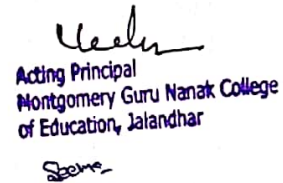 Acting Principal
Montgomery Guru Nanak College
of Education, Jalandhar